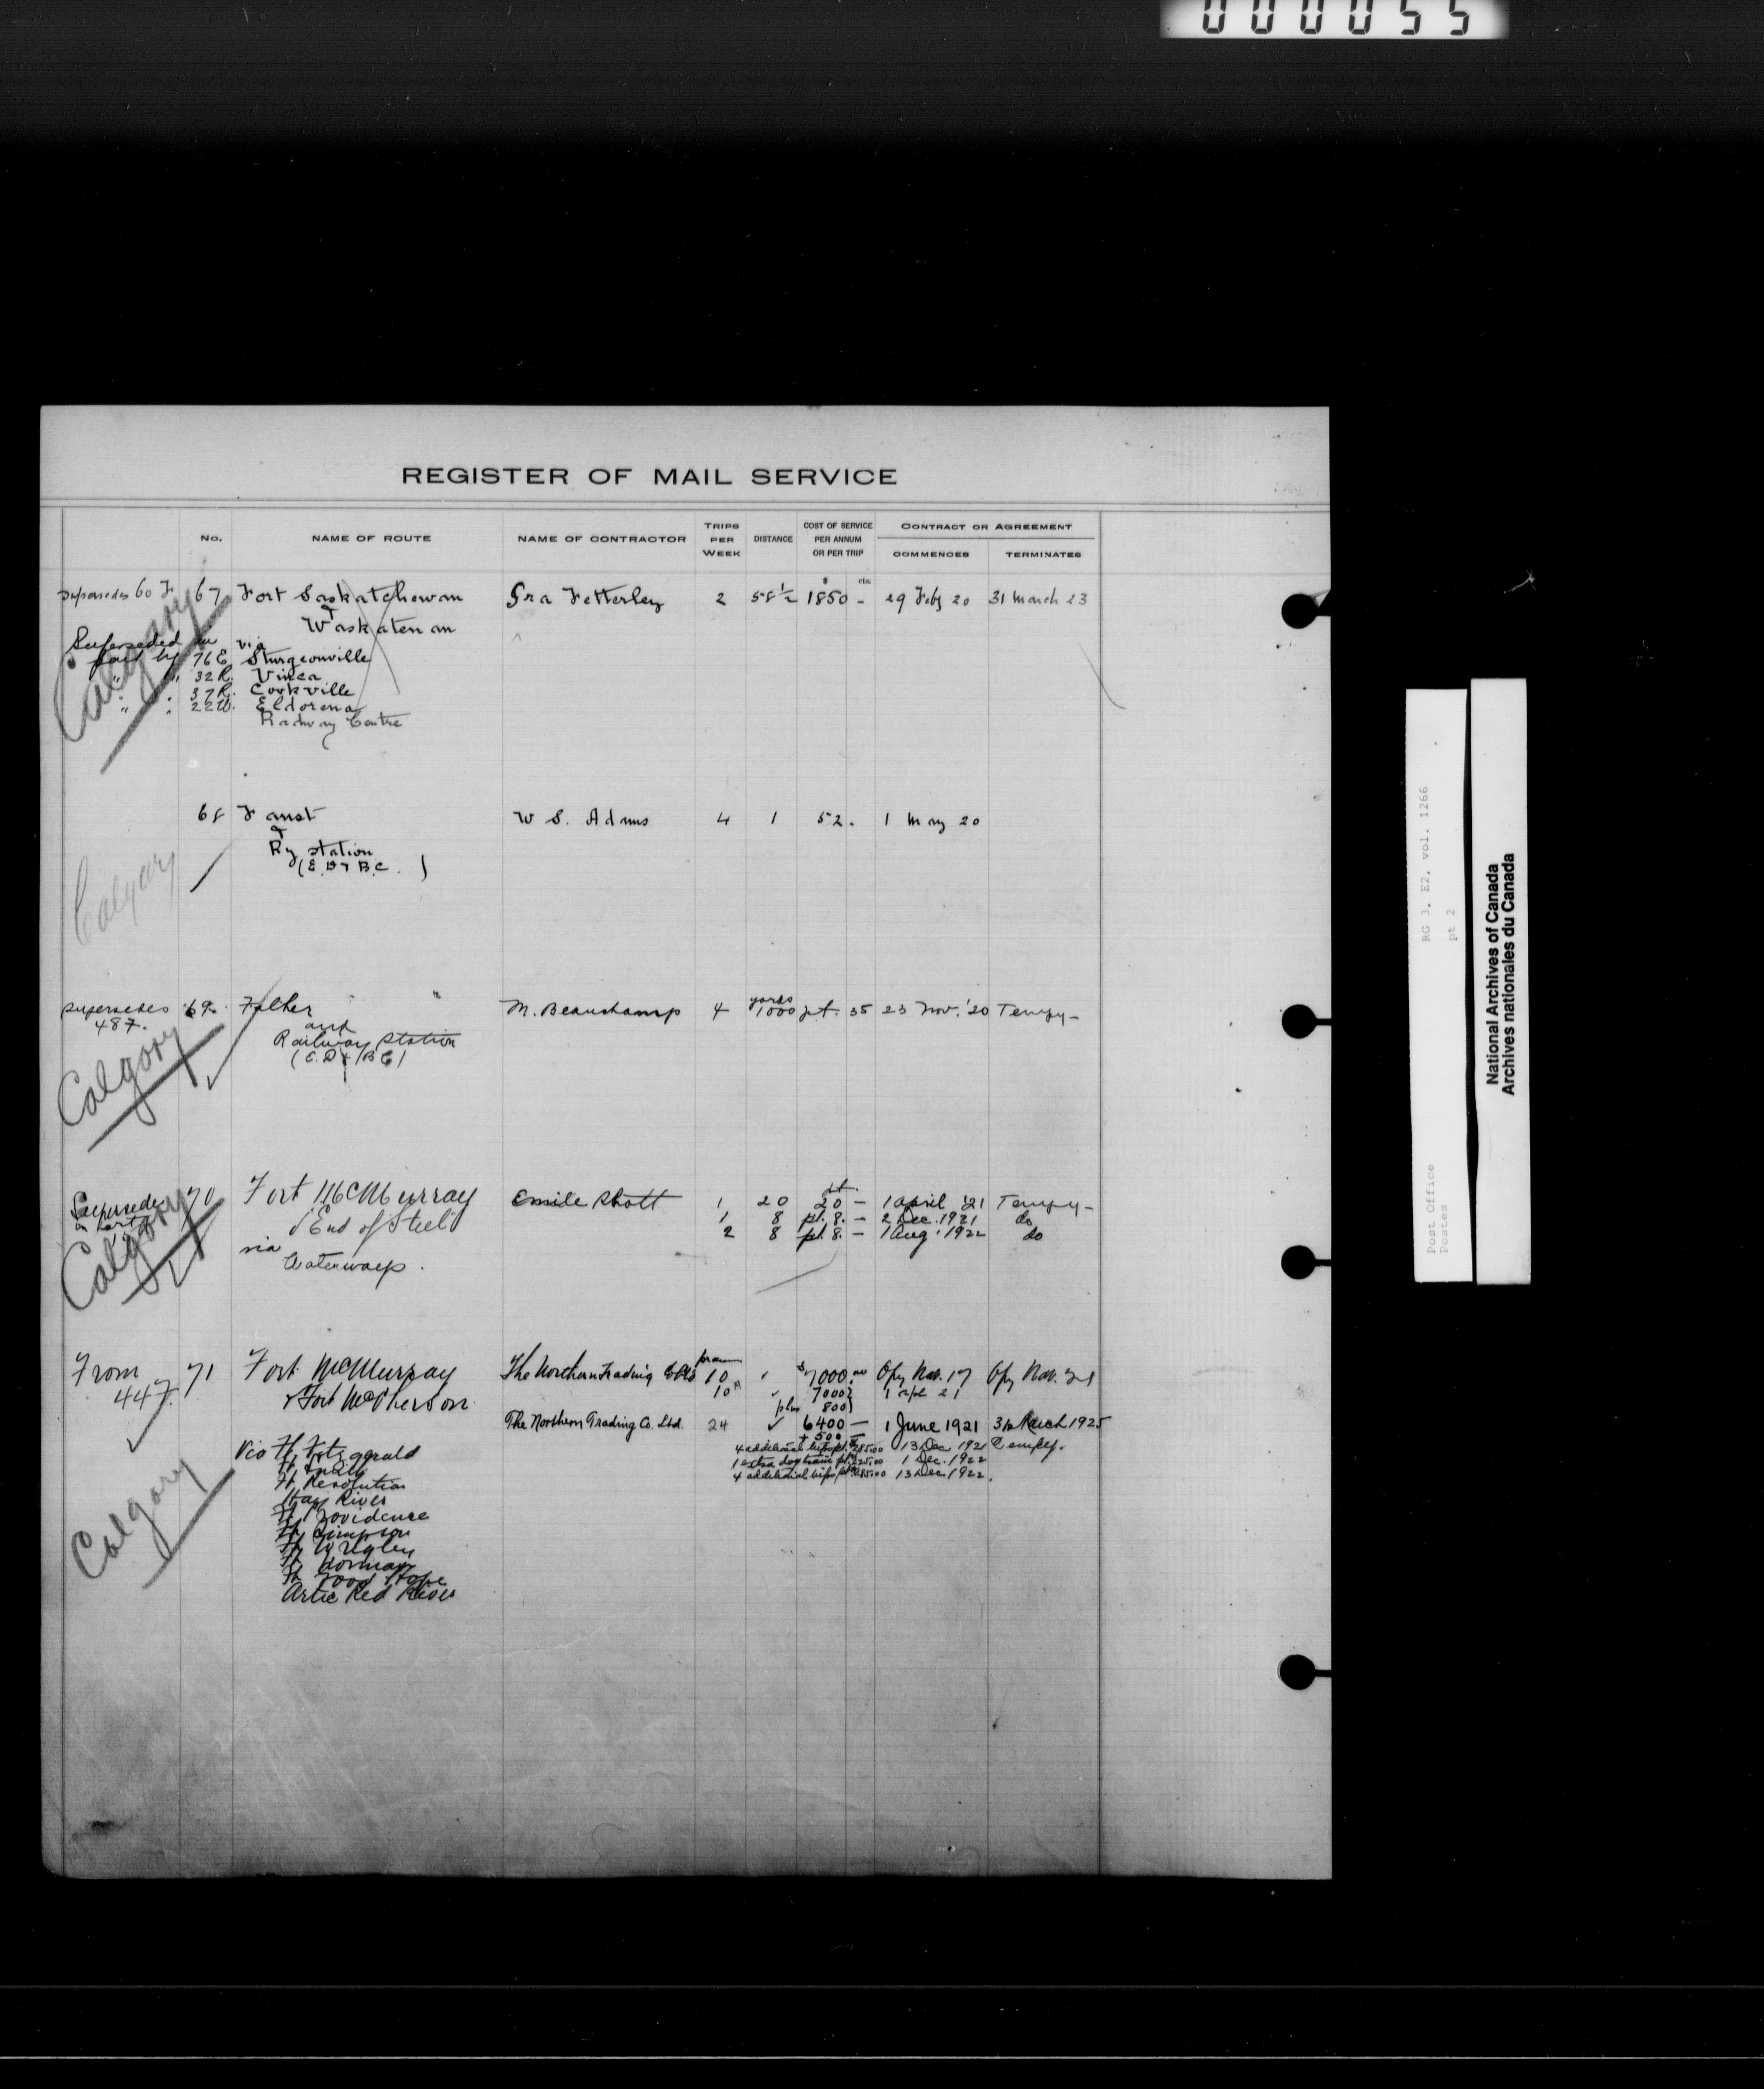 000055
REGISTER OF MAIL SERVICE
No. NAME OF ROUTE NAME OF CONTRACTOR TRIPS PER WEEK DISTANCE COST OF SERVICE PER ANNUM OR PER TRIP CONTRACT OR AGREEMENT COMMENCES TERMINATES
$ cts
supersedes 60 F 67 Fort Saskatchewan Ira Fetterley 2 58 1/2 1850 - 29 Feby 20 31 March 23
& Waskatenau
Superseded in via
part by 76 E Sturgeonville
" " 32 R. Vinca
" " 37 R. Cookville
" " 22 W. Eldorena
Radway Centre
Calgary
68 Faust W S. Adams 4 1 52. 1 May 20
&
Ry station
(E. D & B.C. )
Calgary
supersedes 69. Falher " M. Beauchamp 4 yards 1000 pt. 35 23 Nov. '20 Tempy-
487. and
Railway Station
(E. D & B C)
Calgary
Superseded 70 Fort McMurray Emile Shott 1 20 pt. 20 - 1 April '21 Tempy-
in part & End of Steel 1 8 pt. 8. - 2 Dec. 1921 do
2 8 pt. 8. - 1 Aug. 1922 do
via
Waterways.
Calgary
From 71 Fort McMurray The Northern Trading Co Ltd per ann 10 $7000.00 Opg Nav. 17 Opg Nav. 21
447. & Fort McPherson 10 7000 1 apl 21
plus 800
The Northern Trading Co. Ltd. 24 6400 - 1 June 1921 31 March 1925
+ 500 -
4 additional trips pt. 13 Dec 1921 Tempy.
1 extra dog train pt. 1 Dec. 1922
4 additional trips pt. 13 Dec. 1922.
Via Ft. Fitzgerald
Ft. Smith
Ft. Resolution
Hay River
Ft. Providence
Ft. Simpson
Ft. Wrigley
Ft. Norman
Ft. Good Hope
Artic Red River
Calgary
RG 3, E2, vol. 1266
pt 2
Post Office
Postes
National Archives of Canada
Archives nationales du Canada